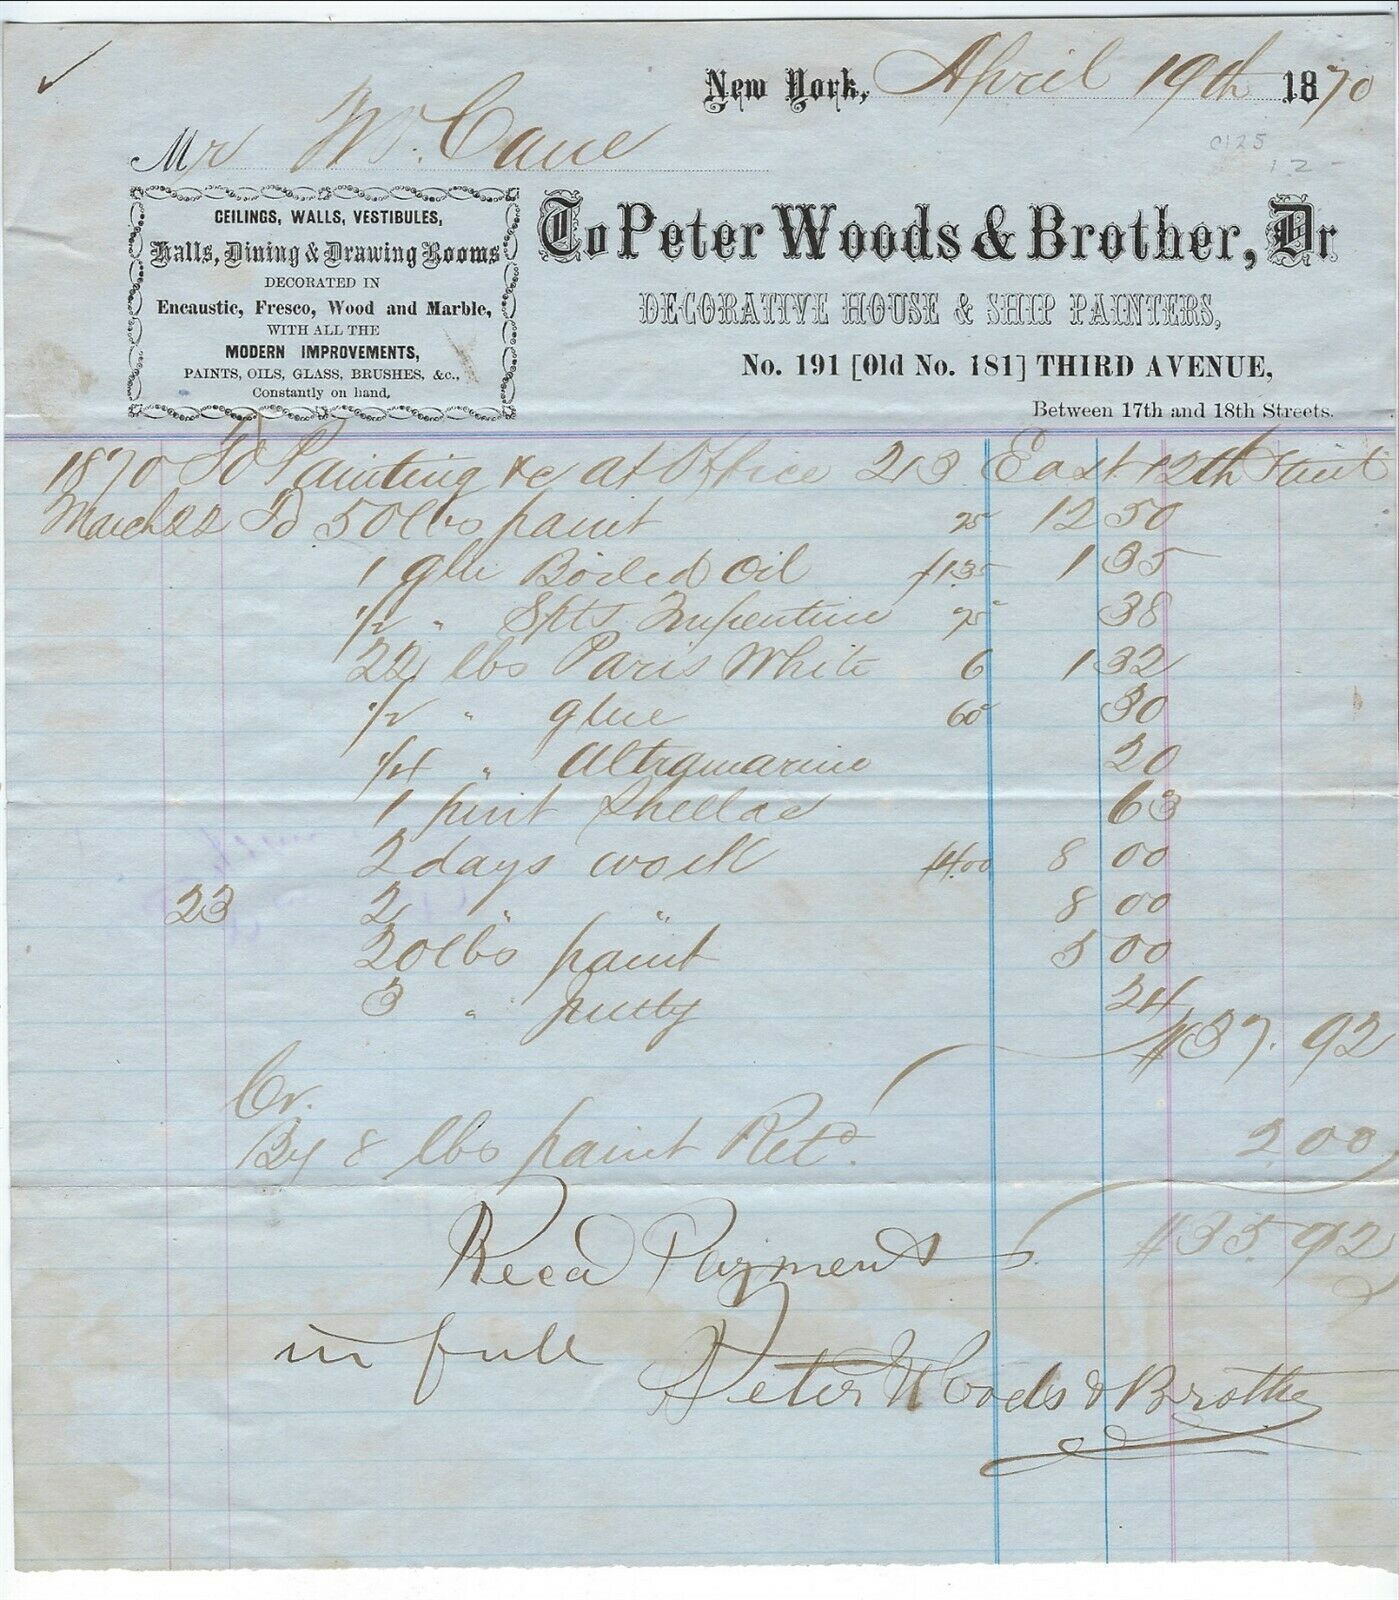 New York, April 19th 1870
Mr Wm. Cane
0125
12-
CEILINGS, WALLS, VESTIBULES,
Halls, Dining & Drawing Rooms
DECORATED IN
Encaustic, Fresco, Wood and Marble,
WITH ALL THE
MODERN IMPROVEMENTS,
PAINTS, OILS, GLASS, BRUSHES, &c.,
Constantly on hand.
To Peter Woods & Brother, Dr
DECORATIVE HOUSE & SHIP PAINTERS,
No. 191 [Old No. 181] THIRD AVENUE,
Between 17th and 18th Streets.
1870 To Painting &c at Office 213 East 12th Street
March 22 To 50 lbs paint 25 12 50
1 gln Boiled Oil $1.35 1 35
1/2 " Spts Turpentine 75 38
22 lbs Paris White 6 1 32
1/2 " glue 60 30
1/4 " Ultramarine 20
1 pint Shellac 63
2 days work $4.00 8 00
23 2 " " 8 00
20 lbs paint 5 00
3 " putty 24
$37.92
Cr.
By 8 lbs paint Retd. 2.00
$35.92
Recd Payment
in full
Peter Woods & Brother